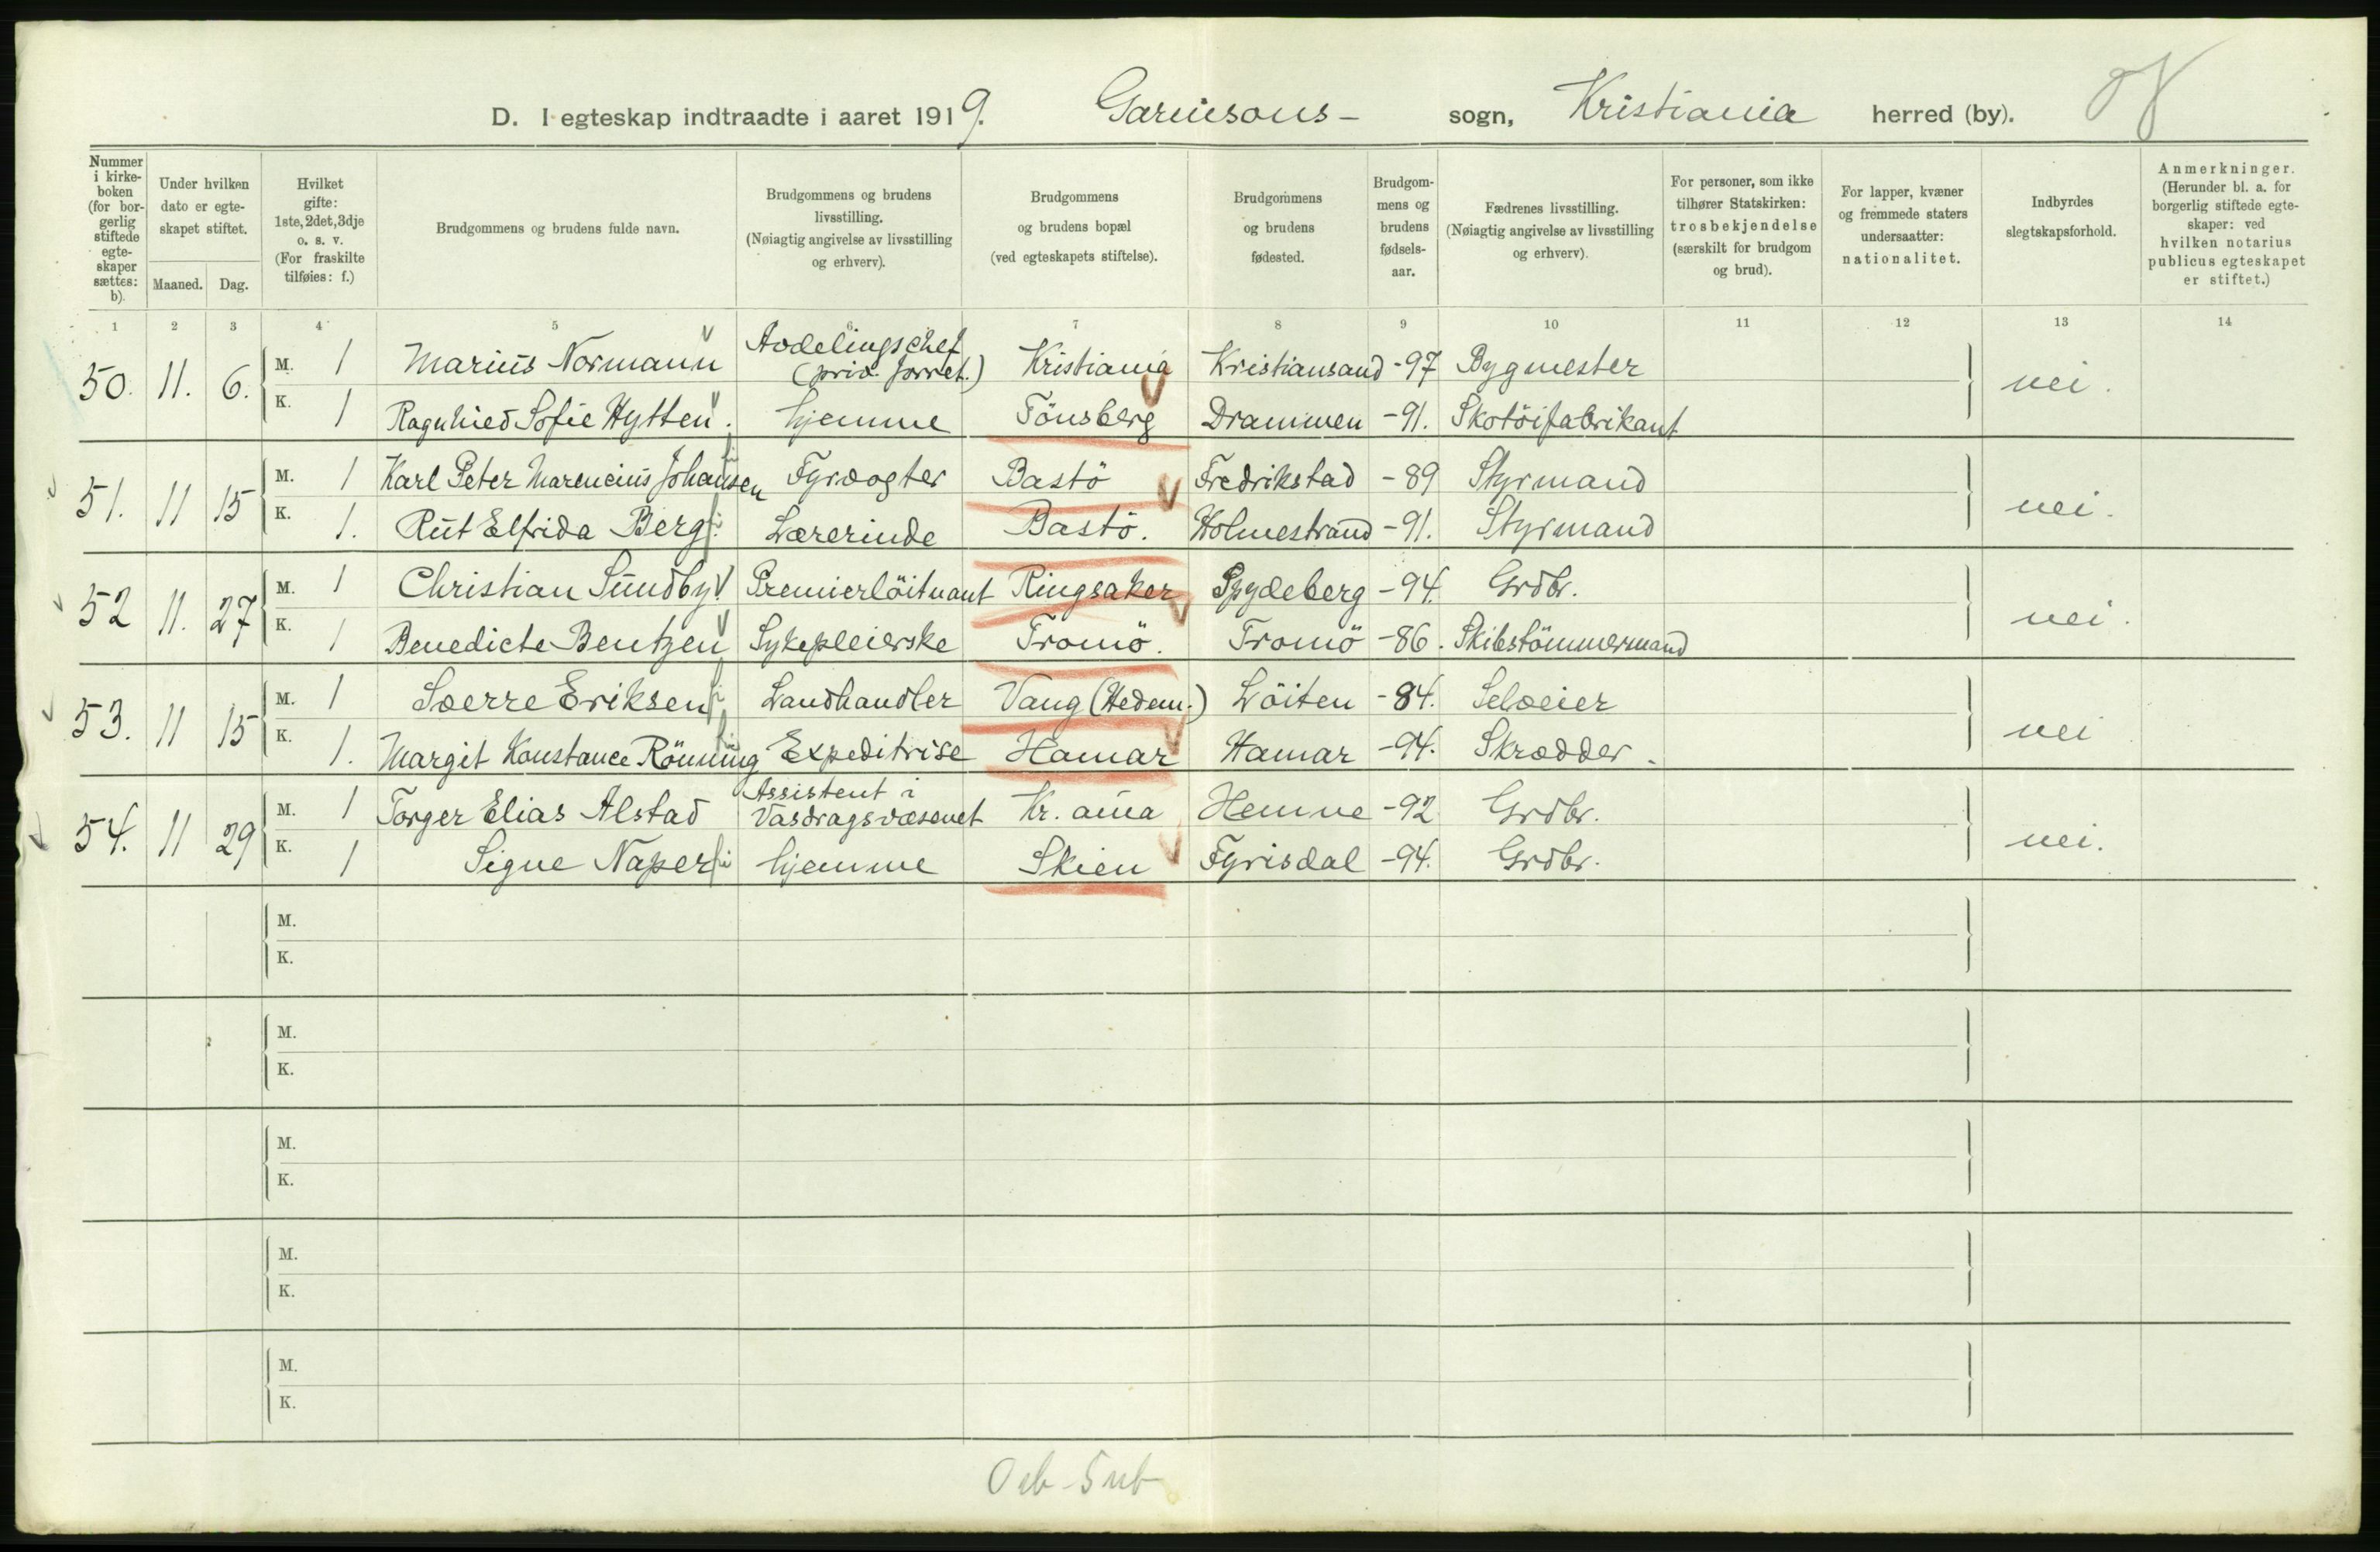 D. I egteskap indtraadte i aaret 1919. Garnisons- sogn, Kristiania herred (by).
Nummer i kirkeboken (for borgerlig stiftede egteskaper sættes: b).
Under hvilken dato er egteskapet stiftet.
Maaned. Dag.
Hvilket gifte: 1ste, 2det, 3dje o. s. v. (For fraskilte tilføies: f.)
Brudgommens og brudens fulde navn.
Brudgommens og brudens livsstilling. (Nøiagtig angivelse av livsstilling og erhverv).
Brudgommens og brudens bopæl (ved egteskapets stiftelse).
Brudgommens og brudens fødested.
Brudgommens og brudens fødselsaar.
Fædrenes livsstilling. (Nøiagtig angivelse av livsstilling og erhverv).
For personer, som ikke tilhører Statskirken: trosbekjendelse (særskilt for brudgom og brud).
For lapper, kvæner og fremmede staters undersaatter: nationalitet.
Indbyrdes slegtskapsforhold.
Anmerkninger. (Herunder bl. a. for borgerlig stiftede egteskaper: ved hvilken notarius publicus egteskapet er stiftet.)
1 2 3 4 5 6 7 8 9 10 11 12 13 14
50. 11. 6. M. 1 Marius Normann Avdelingschef (priv. forret.) Kristiania Kristiansand -97 Bygmester nei.
K. 1 Ragnhild Sofie Hytten. hjemme Tönsberg Drammen -91. Skotöifabrikant
51. 11 15 M. 1 Karl Peter Marencius Johansen Fyrvogter Bastö Fredrikstad -89 Styrmand nei.
K. 1. Rut Elfrida Berg Lærerinde Bastö. Holmestrand -91. Styrmand
52 11. 27 M. 1 Christian Sundby Premierlöitnant Ringsaker Spydeberg -94. Grdbr. nei.
K. 1 Benedicte Bentzen Sykepleierske Tromö. Tromö -86. Skibstömmermand
53. 11 15 M. 1 Sverre Eriksen Landhandler Vang (Hedem.) Löiten -84. Selveier nei
K. 1. Margit Konstance Rönning Expeditrise Hamar Hamar -94. Skrædder.
54. 11 29 M. 1 Torger Elias Alstad Assistent i Vasdragsvæsenet Kr.ania Hemne -92 Grdbr. nei.
K. 1 Signe Naper hjemme Skien Fyrisdal -94. Grdbr.
M.
K.
M.
K.
M.
K.
M.
K.
M.
K.